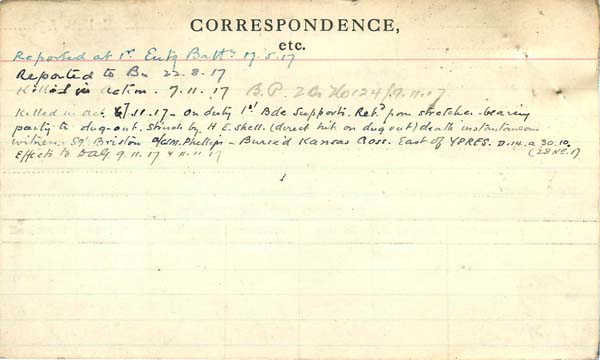 CORRESPONDENCE,
etc.
Reported at 1st Entg Battn 17.5.17
Reported to Bn 22.8.17
Killed in action. 7.11.17 B.P. 2 Bn No 124 9.11.17
Killed in act. 11.17 - On duty 1st Bde Supports. Retd from stretcher-bearing
party to dug-out. Struck by H E. shell. (direct hit on dug out) death instantaneous
witness. Sgt Bristow Phillips - Buried Kansas Cross. East of YPRES. D.14.a.30.10.
Effects to DAG. 9.11.17 & 11.11.17 (28 N.E.1)